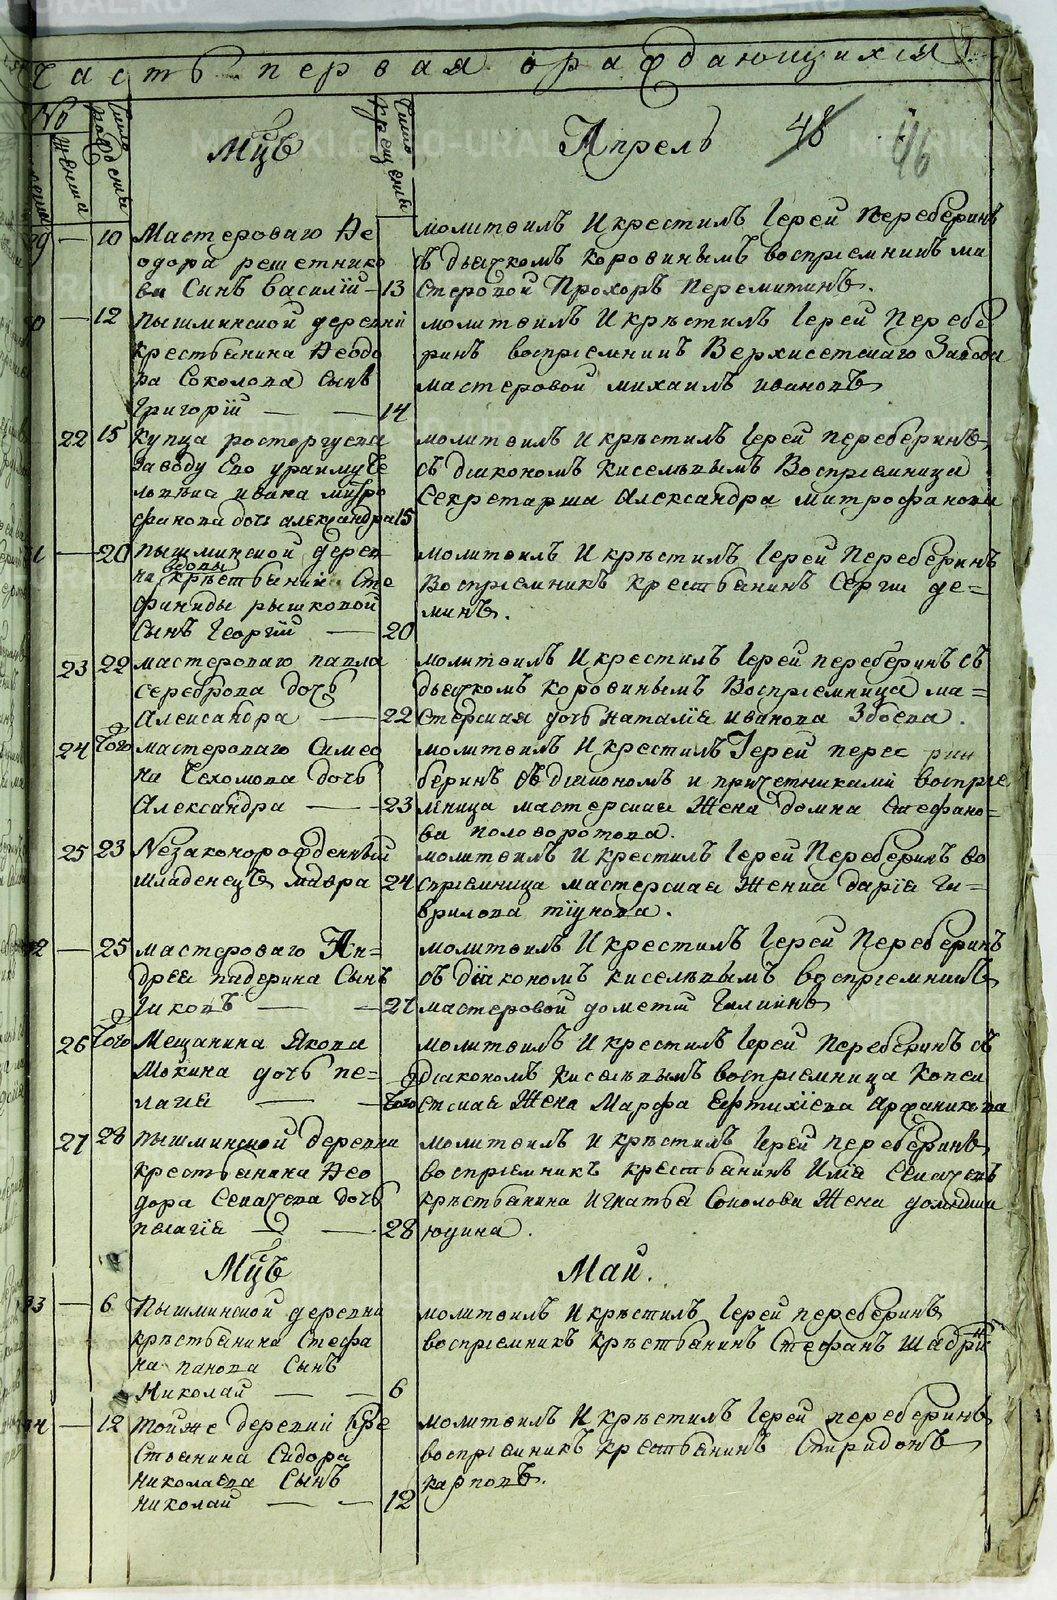 Часть первая ѡраждающихся
№
женска
Число рождения
Мцъ
Число крещения
Апрель
48
46
29 — 10 Мастероваго Ѳе
одора решетнико
ва Сынъ Василій — 13
молитвилъ И крестилъ Іерей Переберинъ
съ дьячкомъ коровинымъ воспріемникъ ма
стеровой Прохоръ Перемитинъ.
30 — 12 Пышминской деревни
крестьянина Ѳеодо
ра Соколова Сынъ
Григорій — — 14
молитвилъ И кръстилъ Іерей Перебе
ринъ воспріемникъ Верхисетскаго Завода
мастеровой михаилъ ивановъ
22 15 Купца росторгуева
заводу Его
ивана митро
фанова дочь александра 15
молитвилъ И кръстилъ Іерей Переберинъ
съ діакономъ Киселевымъ Воспріемница
Секретарша Александра митрофанова
31 — 20 пышминской дерев
ни вдовы кръстьяніни Сте
фаниды рышковой
Сынъ Георгій — 20
молитвилъ И кръстилъ Іерей Переберинъ
Воспріемникъ крестьянинъ Сергій де=
минъ.
23 22 мастероваго павла
сереброва дочь
Александра — 22
молитвилъ И крестилъ Іерей переберинъ съ
дьячкомъ коровинымъ Воспріемница ма=
стерская дочь наталія иванова Збоева.
24 Того мастероваго Симео
на Чехомова дочь
Александра — — 23
молитвилъ И крестилъ Іерей пере
беринъ съ діакономъ и причетниками воспріе
мница мастерская Жена домна Стефано=
ва половоротова.
25 23 Незаконорожденный
младенецъ мавра 24
молитвилъ И крестилъ Іерей Переберинъ во
спріемница мастерская Женка дарія Га=
врилова тіунова.
32 — 25 мастероваго Ан=
дрея падерина Сынъ
Іяковъ — — 27
молитвилъ И крестилъ Іерей Переберинъ
съ діакономъ киселевымъ воспріемникъ
мастеровой дометій Галкинъ
26 Того Мещанина Якова
Мокина дочь пе=
лагія — — Того
молитвилъ И крестилъ Іерей Переберинъ съ
діакономъ Киселевымъ воспріемница Копеи
стская Жена Марфа Евтихіева
27 28 пышминской деревни
крестьянина Ѳео
дора Севачева дочь
пелагія — — 28
молитвилъ И кръстилъ Іерей переберинъ
воспріемникъ крестьянинъ Илья Севачевъ
кръстьянина Игнатья Соколова Жена
юдина.
Мцъ
Маи.
33 — 6 Пышминской деревни
кръстьянина Стефа
на панова Сынъ
Николай — — 6
молитвилъ И кръстилъ Іерей переберинъ
воспріемникъ кръстьянинъ Стефанъ
34 — 12 той же деревни Кре
стьянина Сидора
николаева Сынъ
николай — — 12
молитвилъ И кръстилъ Іерей переберинъ
воспріемникъ крестьянинъ Спиридонъ
карповъ.